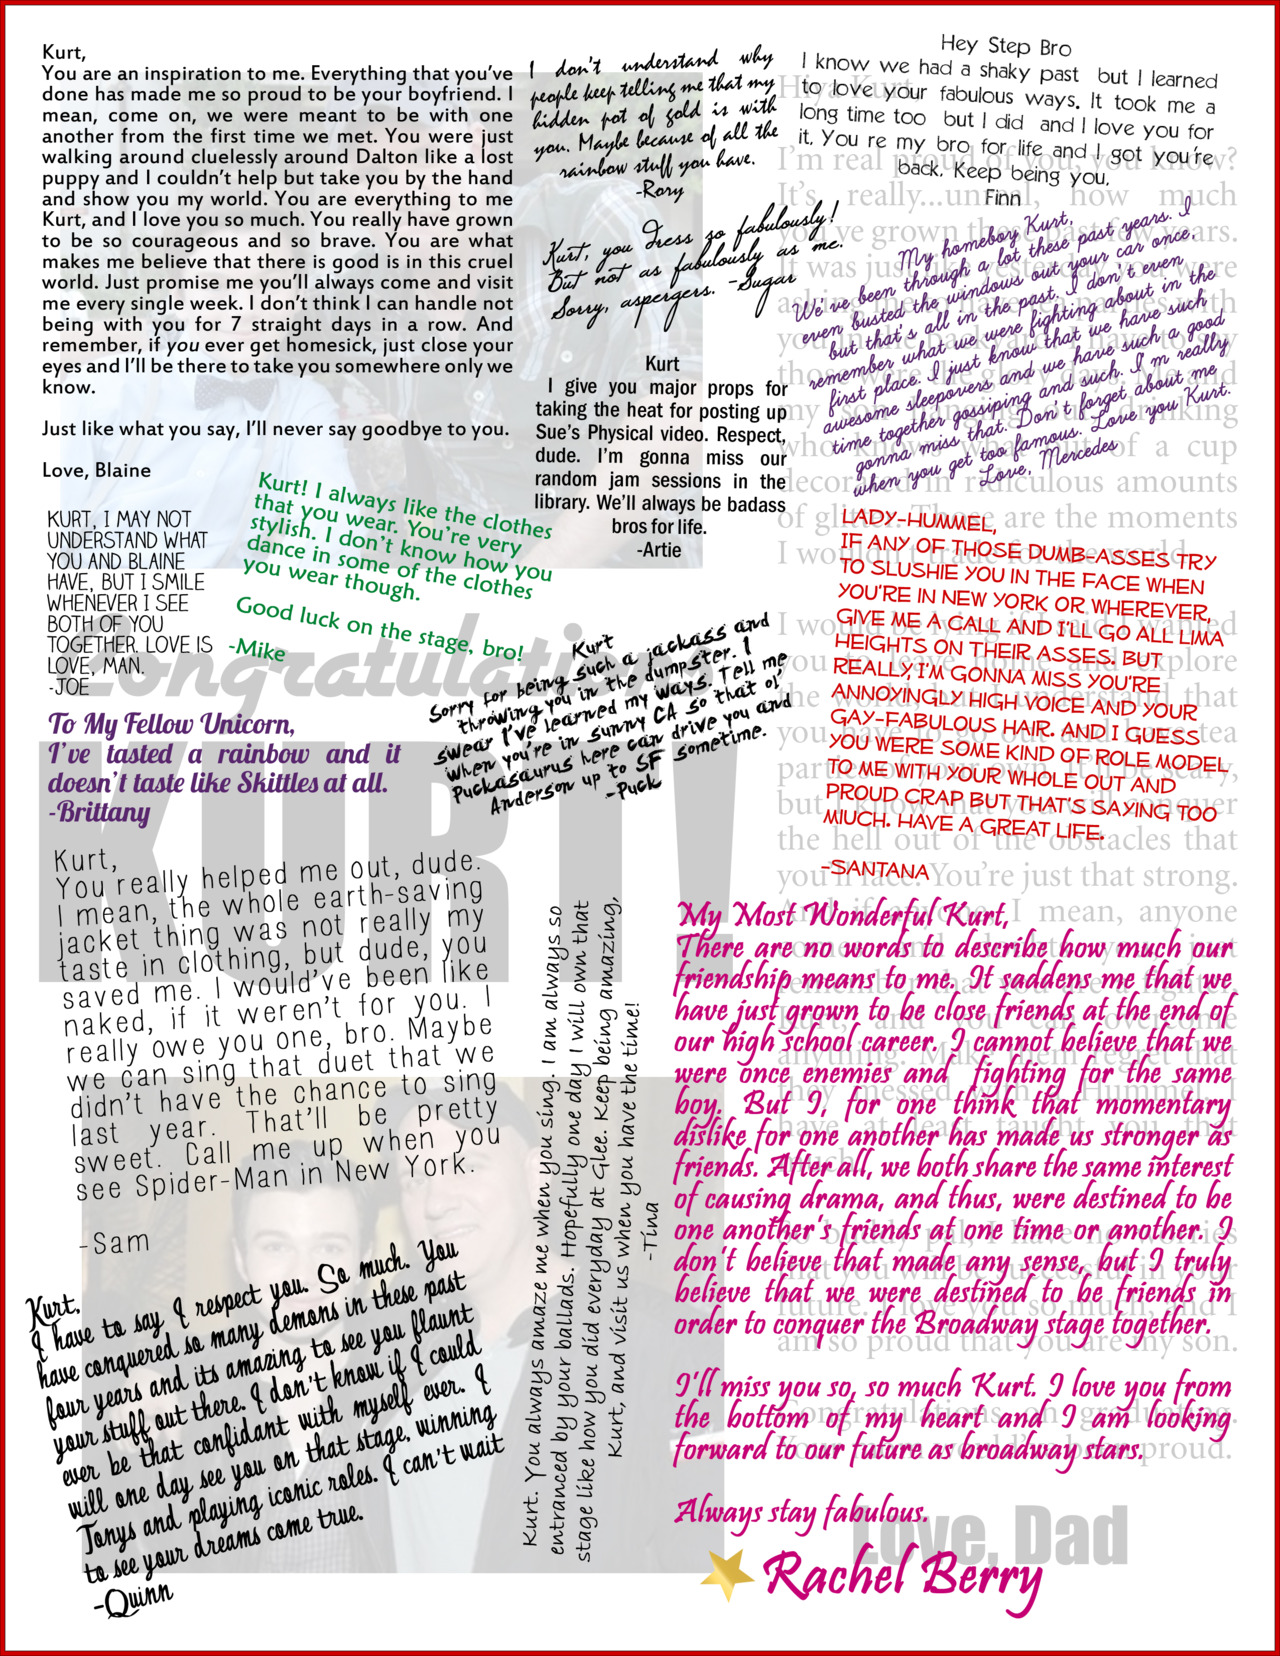 Kurt,
You are an inspiration to me. Everything that you've
done has made me so proud to be your boyfriend. I
mean, come on, we were meant to be with one
another from the first time we met. You were just
walking around cluelessly around Dalton like a lost
puppy and I couldn't help but take you by the hand
and show you my world. You are everything to me
Kurt, and I love you so much. You really have grown
to be so courageous and so brave. You are what
makes me believe that there is good is in this cruel
world. Just promise me you'll always come and visit
me every single week. I don't think I can handle not
being with you for 7 straight days in a row. And
remember, if you ever get homesick, just close your
eyes and I'll be there to take you somewhere only we
know.
Just like what you say, I'll never say goodbye to you.
Love, Blaine
I don't understand why
people keep telling me that my
hidden pot of gold is with
you. Maybe because of all the
rainbow stuff you have.
-Rory
Hey Step Bro
I know we had a shaky past but I learned
to love your fabulous ways. It took me a
long time too but I did and I love you for
it. You re my bro for life and I got you're
back. Keep being you.
Finn
Kurt, you dress so fabulously!
But not as fabulously as me.
Sorry, aspergers. -Sugar
My homeboy Kurt,
We've been through a lot these past years. I
even busted the windows out your car once,
but that's all in the past. I don't even
remember what we were fighting about in the
first place. I just know that we have such
awesome sleepovers and we have such a good
time together gossiping and such. I'm really
gonna miss that. Don't forget about me
when you get too famous. Love you Kurt.
Love, Mercedes
Kurt
I give you major props for
taking the heat for posting up
Sue's Physical video. Respect,
dude. I'm gonna miss our
random jam sessions in the
library. We'll always be badass
bros for life.
-Artie
Kurt! I always like the clothes
that you wear. You're very
stylish. I don't know how you
dance in some of the clothes
you wear though.
Good luck on the stage, bro!
-Mike
KURT, I MAY NOT
UNDERSTAND WHAT
YOU AND BLAINE
HAVE, BUT I SMILE
WHENEVER I SEE
BOTH OF YOU
TOGETHER. LOVE IS
LOVE, MAN.
-JOE
LADY-HUMMEL,
IF ANY OF THOSE DUMB-ASSES TRY
TO SLUSHIE YOU IN THE FACE WHEN
YOU'RE IN NEW YORK OR WHEREVER,
GIVE ME A CALL AND I'LL GO ALL LIMA
HEIGHTS ON THEIR ASSES. BUT
REALLY, I'M GONNA MISS YOU'RE
ANNOYINGLY HIGH VOICE AND YOUR
GAY-FABULOUS HAIR. AND I GUESS
YOU WERE SOME KIND OF ROLE MODEL
TO ME WITH YOUR WHOLE OUT AND
PROUD CRAP BUT THAT'S SAYING TOO
MUCH. HAVE A GREAT LIFE.
-SANTANA
Kurt
Sorry for being such a jackass and
throwing you in the dumpster. I
swear I've learned my ways. Tell me
when you're in sunny CA so that ol'
Puckasaurus here can drive you and
Anderson up to SF sometime.
-Puck
Congratulations
KURT!
To My Fellow Unicorn,
I've tasted a rainbow and it
doesn't taste like Skittles at all.
-Brittany
Kurt,
You really helped me out, dude.
I mean, the whole earth-saving
jacket thing was not really my
taste in clothing, but dude, you
saved me. I would've been like
naked, if it weren't for you. I
really owe you one, bro. Maybe
we can sing that duet that we
didn't have the chance to sing
last year. That'll be pretty
sweet. Call me up when you
see Spider-Man in New York.
-Sam
Kurt,
I have to say I respect you. So much. You
have conquered so many demons in these past
four years and its amazing to see you flaunt
your stuff out there. I don't know if I could
ever be that confidant with myself ever. I
will one day see you on that stage, winning
Tonys and playing iconic roles. I can't wait
to see your dreams come true.
-Quinn
Kurt. You always amaze me when you sing. I am always so
entranced by your ballads. Hopefully one day I will own that
stage like how you did everyday at Glee. Keep being amazing,
Kurt, and visit us when you have the time!
-Tina
My Most Wonderful Kurt,
There are no words to describe how much our
friendship means to me. It saddens me that we
have just grown to be close friends at the end of
our high school career. I cannot believe that we
were once enemies and fighting for the same
boy. But I, for one think that momentary
dislike for one another has made us stronger as
friends. After all, we both share the same interest
of causing drama, and thus, were destined to be
one another's friends at one time or another. I
don't believe that made any sense, but I truly
believe that we were destined to be friends in
order to conquer the Broadway stage together.
I'll miss you so, so much Kurt. I love you from
the bottom of my heart and I am looking
forward to our future as broadway stars.
Always stay fabulous.
Rachel Berry
I'm real proud of you, you know?
It's really...unreal, how much
the hell out of the obstacles that
you'll face. You're just that strong.
I mean, anyone
am so proud that you are my son.
Love, Dad